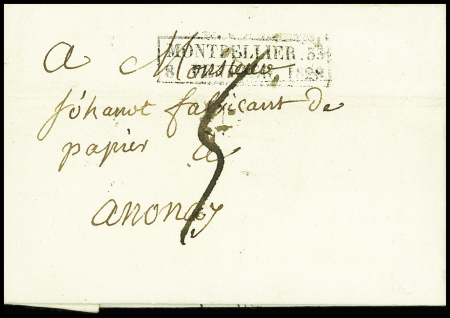 MONTPELLIER . 33
8 1828
a Monsieur
johanot fabricant de
papier a
anonay
5